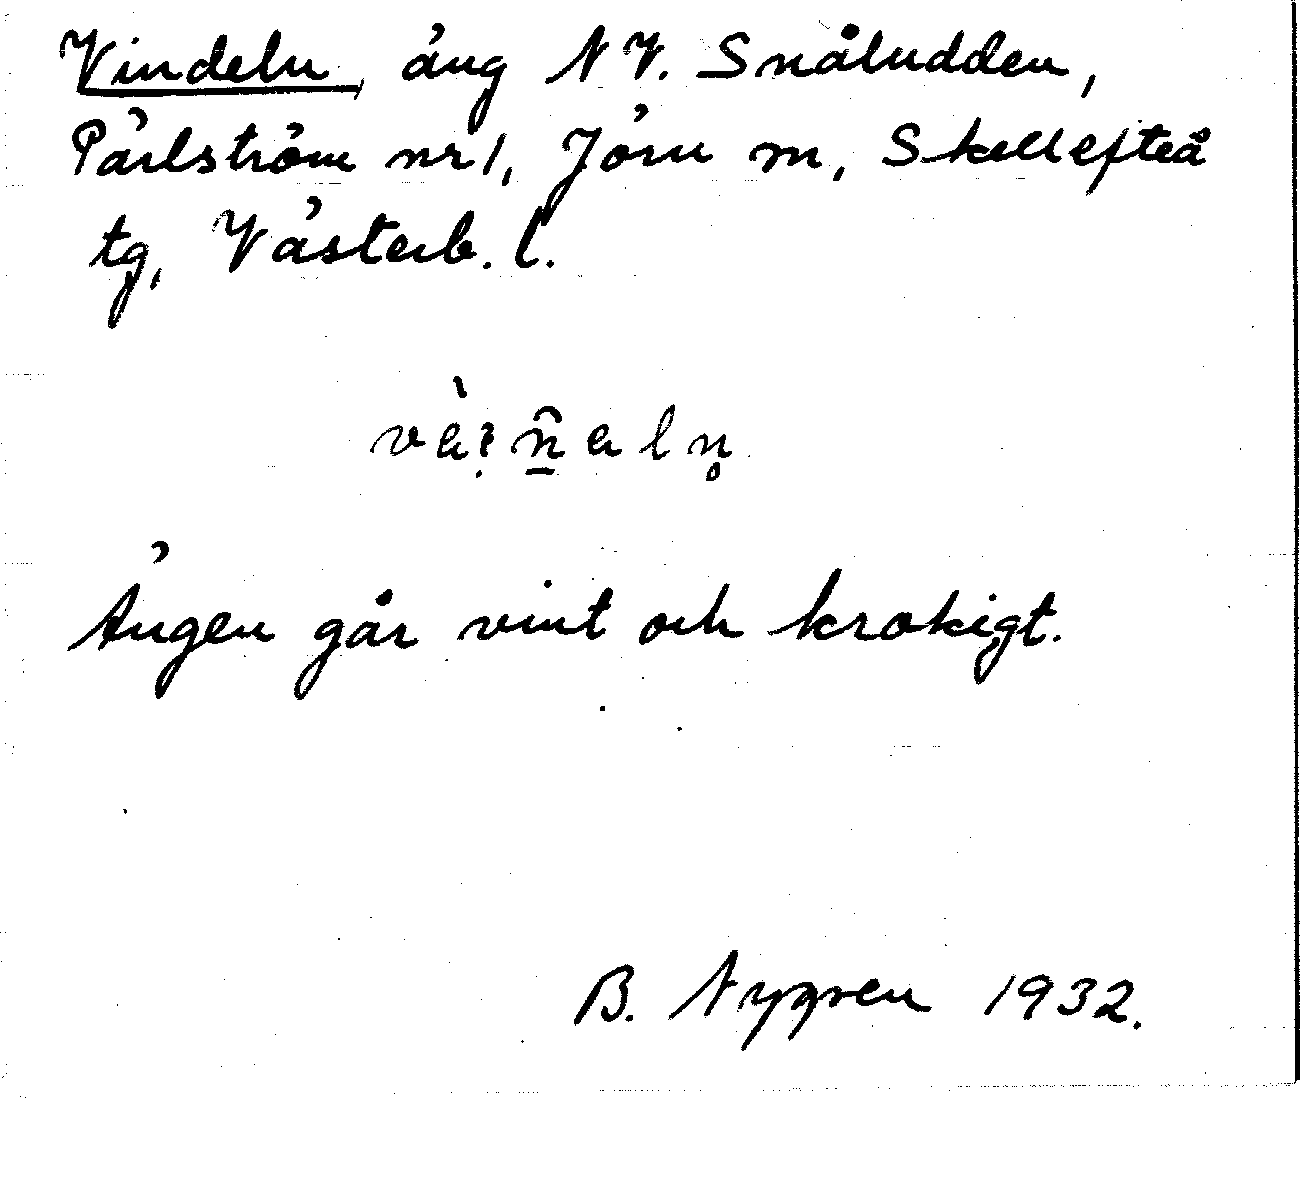 Vindeln, äng NV. Snåludden,
Pärlström nr 1, Jörn sn, Skellefteå
tg, Västerb. l.
Ängen går vint och krokigt.
B. Nygren 1932.